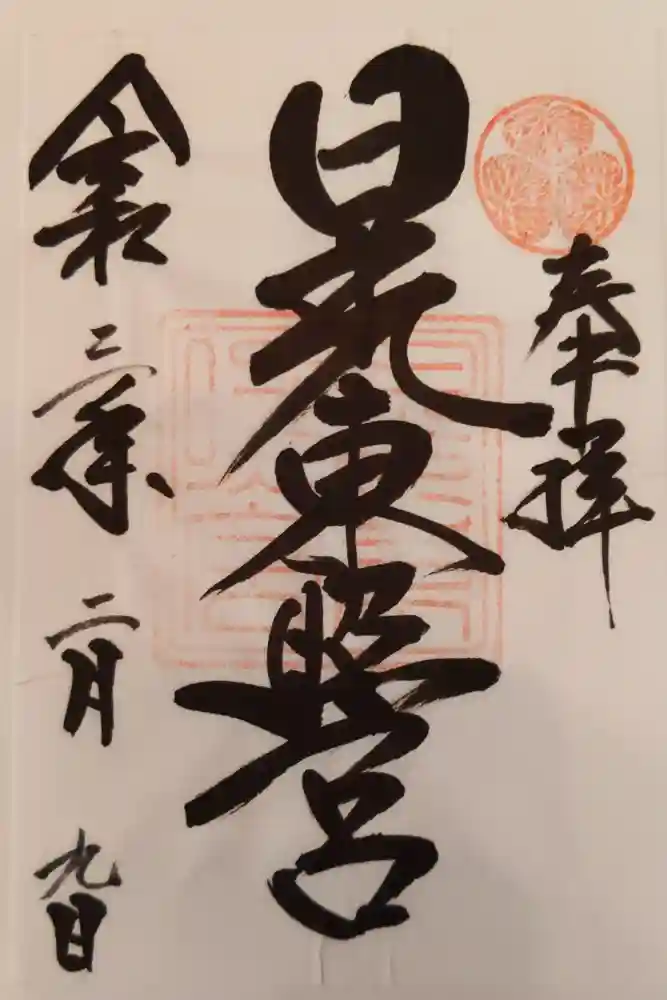 奉拝
日光東照宮
令和三年二月九日